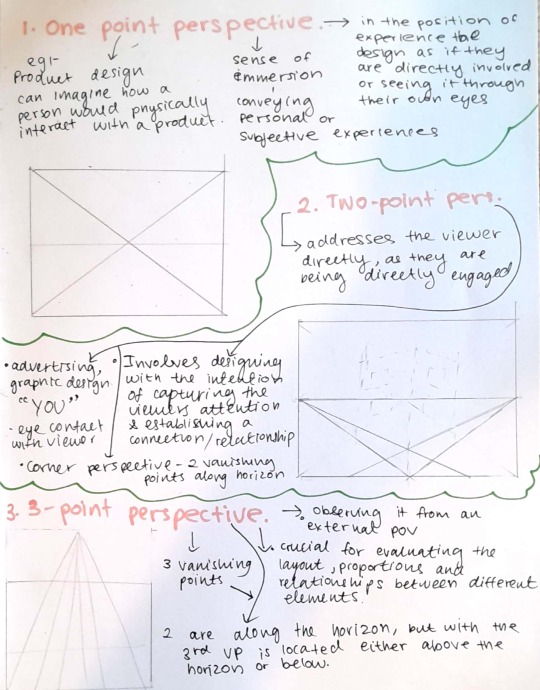 1. One point perspective.
in the position of
experience the
design as if they
are directly involved
or seeing it through
their own eyes
eg:-
Product design
can imagine how a
person would physically
interact with a product.
sense of
immersion
conveying
personal or
subjective experiences
2. Two-point pers.
addresses the viewer
directly, as they are
being directly engaged
• advertising,
graphic design
"YOU"
- eye contact
with viewer
• Involves designing
with the intention
of capturing the
viewers attention
& establishing a
connection/relationship
• Corner perspective - 2 vanishing
points along horizon
3. 3-point perspective.
observing it from an
external pov
3 vanishing
points
• crucial for evaluating the
layout, proportions and
relationships between different
elements.
2 are along the horizon, but with the
3rd VP is located either above the
horizon or below.